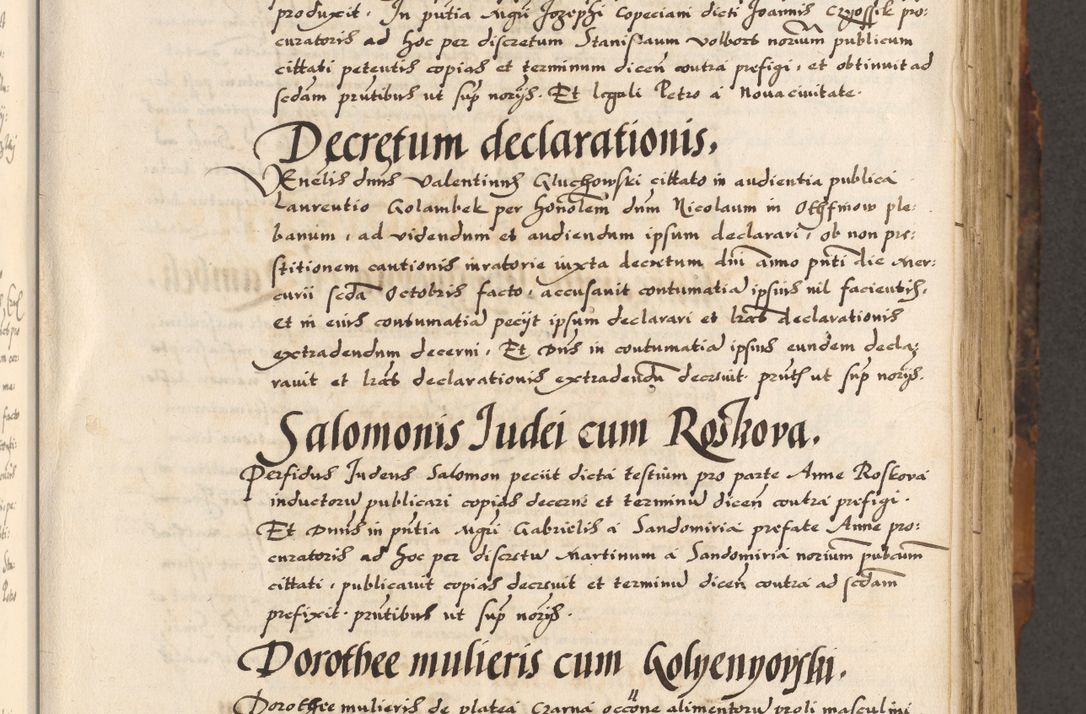 produxit. In pñtia Mgri Jozephi Copeciani dicti Joannis Czyossek pro:
curatoris ad hoc per discretum Stanislaum Volbors noriũm publicum
cittati petentis copias et terminum dicen contra prefigi, et obtinuit ad
sedam pñtibus ut sup norijs. Et legali Petro a Nova civitate.
Decretum declarationis.
VEnelis dnus Valentinus Gluchowski cittato in audientia publica
Laurentio Golambek per honolem dnm Nicolaum in Othfinow ple:
banum, ad videndum et audiendum ipsum declarari, ob non pre:
stitionem cautionis iuratorie iuxta decretum dni anno pnti die Mer:
curii seda Octobris facto, accusavit contumatia ipsius nil facientis,
et in eius contumatia peciit ipsum declarari et lras declarationis
extradendum decerni, Et Dnus in contumatia ipsius eundem decla:
ravit et lras declarationis extradendu decrevit pñtibus ut sup norijs.
Salomonis Iudei cum Roskova.
Perfidus Iudeus Salomon peciit dicta testium pro parte Anne Roskova
inductoru publicari copias decerni et terminu dicen contra prefigi.
Et Dnus in pñtia Mgri Gabrielis a Sandomiria prefate Anne pro:
curatoris ad hoc per discretu Martinum a Sandomiria noriũm pubcum
cittati, publicavit copias decrevit et terminu dicen contra ad sedam
prefixit. pñtibus ut sup norijs.
Dorothee mulieris cum Golyenyovski.
Dorothee mulieris de platea Czarna occõne alimentoru proli masculini